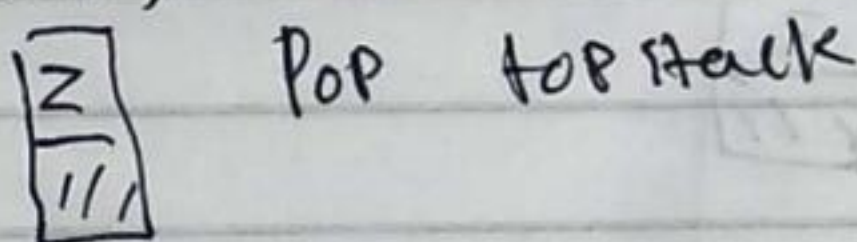 Pop top stack
Z
///